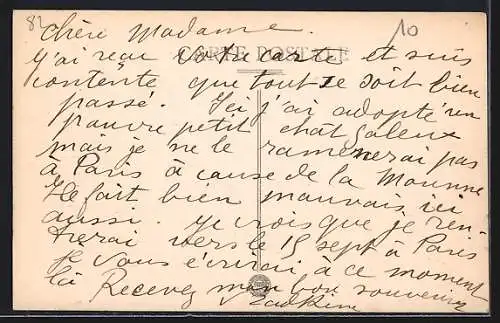 82
10
CARTE POSTALE
Chère Madame.
J'ai reçu votre carte et suis
contente que tout se soit bien
passé. Ici j'ai adopté un
pauvre petit chât galeux
mais je ne le ramenerai pas
à Paris à cause de la Moune
Il fait bien mauvais ici
aussi. Je crois que je ren-
trerai vers le 15 sept à Paris
Je vous écrirai à ce moment
là Recevez mon bon souvenir